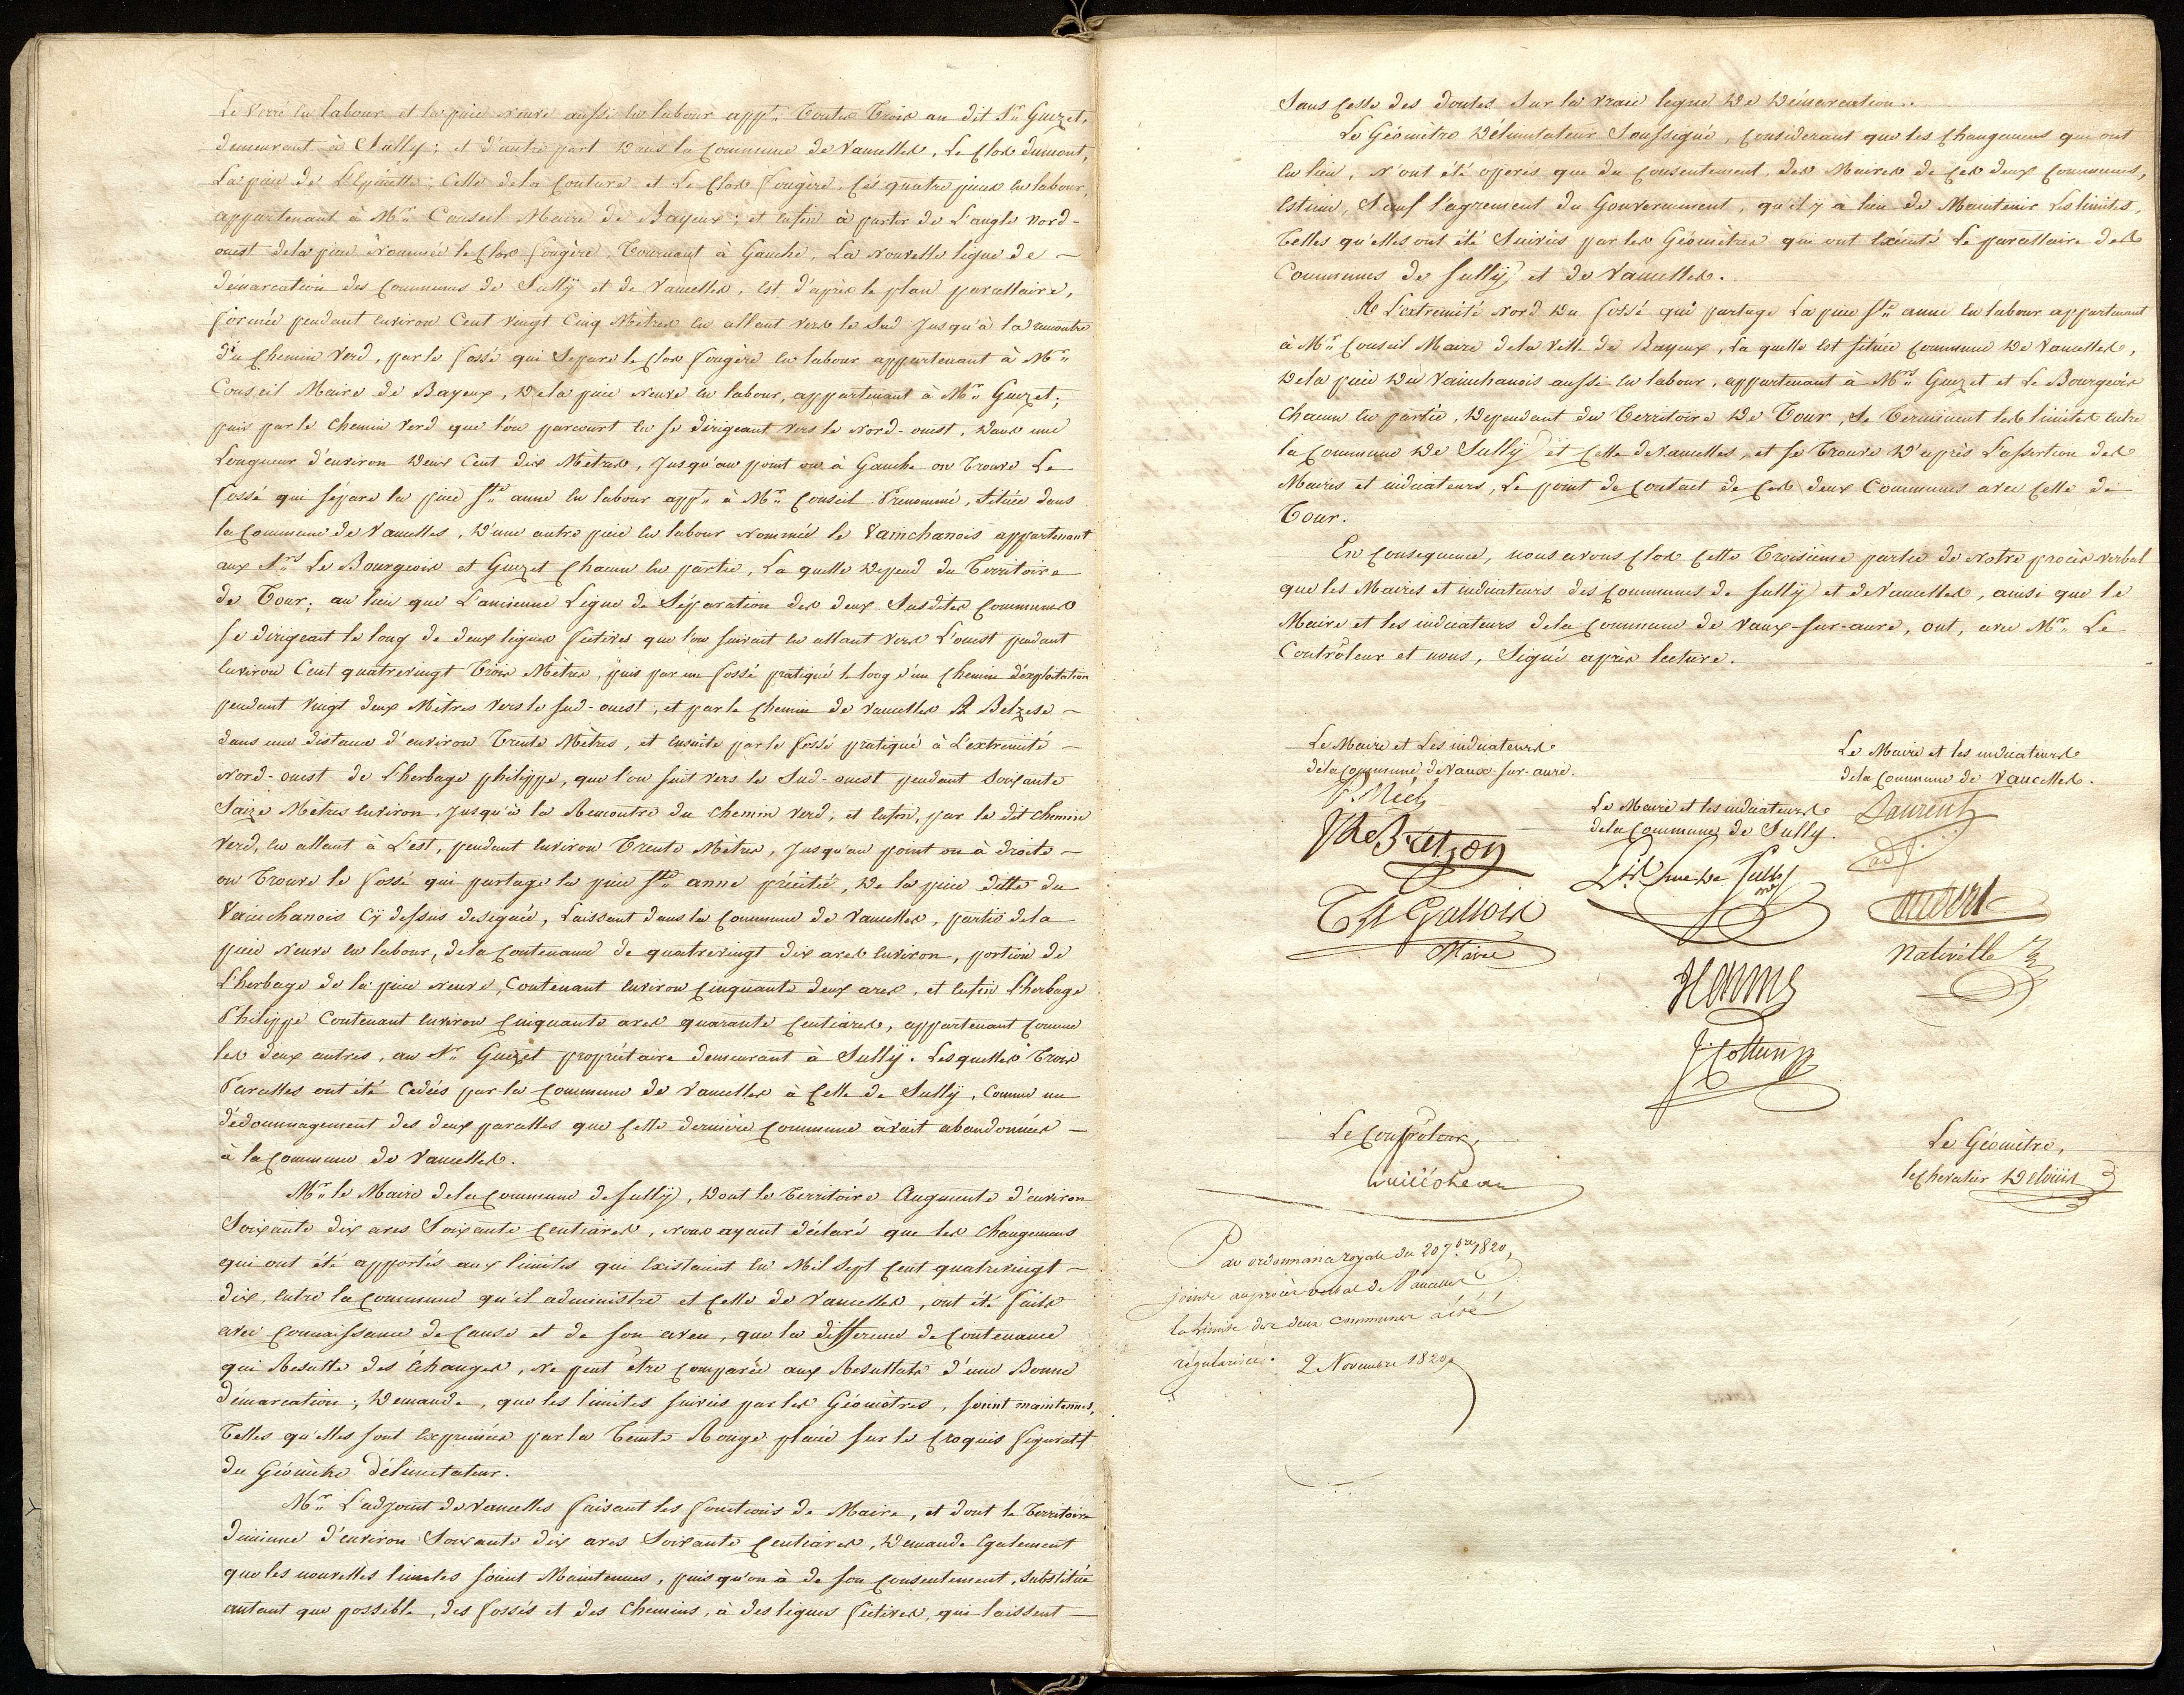 Le Verré en labour et la pièce neuve aussi en labour app.t Toutes Trois au dit Sr. Guezet,
demeurant à Sully; et d'autre part dans la Commune de Vaucelles, Le Clos dumont,
La pièce de L'Epinette, Celle de la Couture et Le Clos Fougère, Ces quatre pièces en labour,
appartenant à Mr. Conseil Maire de Bayeux; et enfin à partir de L'angle nord-
ouest de la pièce nommée le Clos fougère, Tournant à Gauche, La nouvelle ligne de -
démarcation des Communes de Sully et de Vaucelles, est d'après le plan parcellaire,
formée pendant environ Cent vingt Cinq Mètres en allant vers le Sud Jusqu'à la rencontre
du Chemin Verd, par le fossé qui Sépare le Clos fougère en labour appartenant à Mr.
Conseil Maire de Bayeux, De la pièce neuve en labour, appartenant à Mr. Guezet;
puis par le Chemin Verd que l'on parcourt en se dirigeant vers le Nord-ouest, dans une
Longueur d'environ deux Cent dix Mètres, Jusqu'au point où à Gauche on Trouve Le
fossé qui sépare la pièce Ste. anne en labour app.t à Mr. Conseil Prénommé, Située dans
la Commune de Vaucelles, D'une autre pièce en labour nommée le Vainchanois appartenant
aux Srs. Le Bourgeois et Guezet Chacun en partie, La quelle dépend du Territoire
de Tour; au lieu que L'ancienne Ligne de Séparation des deux Susdites Communes
se dirigeait le long de deux lignes fictives que l'on suivait en allant vers L'ouest pendant
environ Cent quatrevingt Trois Mètres, puis par un fossé pratiqué le long d'un Chemin d'exploitation
pendant Vingt deux Mètres vers le sud-ouest, et par le Chemin de Vaucelles A Belzese -
dans une distance d'environ Trente Mètres, et ensuite par le fossé pratiqué à L'extremité -
Nord-ouest de L'herbage philippe, que l'on suit vers le Sud-ouest pendant Soixante
Saize Mètres environ, Jusqu'à la Rencontre du Chemin Verd, et enfin, par le dit Chemin
Verd, en allant à L'est, pendant environ Trente Mètres, Jusqu'au point ou à droite -
on Trouve le fossé qui partage la pièce Ste. anne précitée, De la pièce ditte du
Vainchanois Cÿ dessus désignée, Laissant dans la Commune de Vaucelles, partie de la
pièce Neuve en labour, de la Contenance de quatrevingt dix ares environ, portion de
L'herbage de la pièce Neuve, Contenant environ Cinquante deux ares, et enfin L'herbage
Philippe Contenant environ Cinquante ares quarante Centiares, appartenant comme
les deux autres, au Sr. Guezet propriétaire demeurant à Sullÿ. Lesquelles Trois
Parcelles ont été Cédées par la Commune de Vaucelles à Celle de Sullÿ, Comme un
dédommagement des deux parcelles que Cette dernière Commune avait abandonnées -
à la Commune de Vaucelles.
Mr. le Maire de la Commune de Sullÿ, Dont le Territoire Augmente d'environ
Soixante dix ares Soixante Centiares, Nous ayant déclaré que les Changemens
qui ont été apportés aux limites qui Existaient en Mil Sept Cent quatrevingt -
dix, entre la Commune qu'il administre et Celle de Vaucelles, ont été faits
avec Connaissance de Cause et de son aveu, que la différence de Contenance
qui Resulte des Échanges, Ne peut être Comparée aux Resultats d'une Bonne
démarcation; Demande, que les limites suivies par les Géomètres, soient maintenues,
Telles qu'elles sont Exprimées par la Teinte Rouge placée sur le Croquis figuratif
du Géomètre délimitateur.
Mr. L'adjoint de Vaucelles faisant les fonctions de Maire, et dont le Territoire
diminue d'environ Soixante dix ares Soixante Centiares, Demande Egalement
que les nouvelles limites soient Maintenues, puis qu'on à de son Consentement, Substitué
autant que possible, des fossés et des Chemins, à des lignes fictives, qui laissent -
Sans Cesse des doutes Sur la vraie ligne De Démarcation.
Le Géomètre Délimitateur Soussigné, Considérant que les Changemens qui ont
eu lieu, N'ont été opérés que du Consentement des Maires de Ces deux Communes,
Estime, Sauf l'agrément du Gouvernement, qu'il ÿ a lieu de Maintenir Les limites,
Telles qu'elles ont été Suivies par les Géomètres qui ont Exécuté Le parcellaire des
Communes de Sullÿ et de Vaucelles.
A L'extremité Nord du fossé qui partage La pièce Ste. anne en labour appartenant
à Mr. Conseil Maire de la Ville de Bayeux, La quelle Est Située Commune De Vaucelles,
De la pièce du Vainchanois aussi en labour, appartenant à Mrs. Guezet et Le Bourgeois
Chacun en partie, Dépendant du Territoire De Tour, Se Terminent les limites entre
la Commune De Sullÿ et Celle de Vaucelles, et se Trouve D'après L'assertion des
Maires et indicateurs, Le point de Contact de Ces deux Communes avec Celle de
Tour.
En Conséquence, nous avons Clos Cette Troisième partie de Notre procès verbal
que les Maires et indicateurs des Communes de Sullÿ et de Vaucelles, ainsi que le
Maire et les indicateurs de la Commune de Vaux-sur-aure, ont, avec Mr. Le
Contrôleur et nous, Signé après lecture.
Le Maire et Les indicateurs
de la Commune de Vaux-sur-aure.
Le Maire et les indicateurs
de la Commune de Vaucelles.
Le Maire et les indicateurs
de la Commune de Sully.
Laurent
adj.
Le Bretzon
Gallois
Maire
aubert
Nativelle
Hemme
J. Cottun
Le Contrôleur,
Guillotteau
Le Géomètre,
le Chevalier Delouis
Par ordonnance royale du 20 7bre 1820,
jointe au procès verbal de Vaucelles
la limite des deux communes a été
régularisée. 2 Novembre 1820